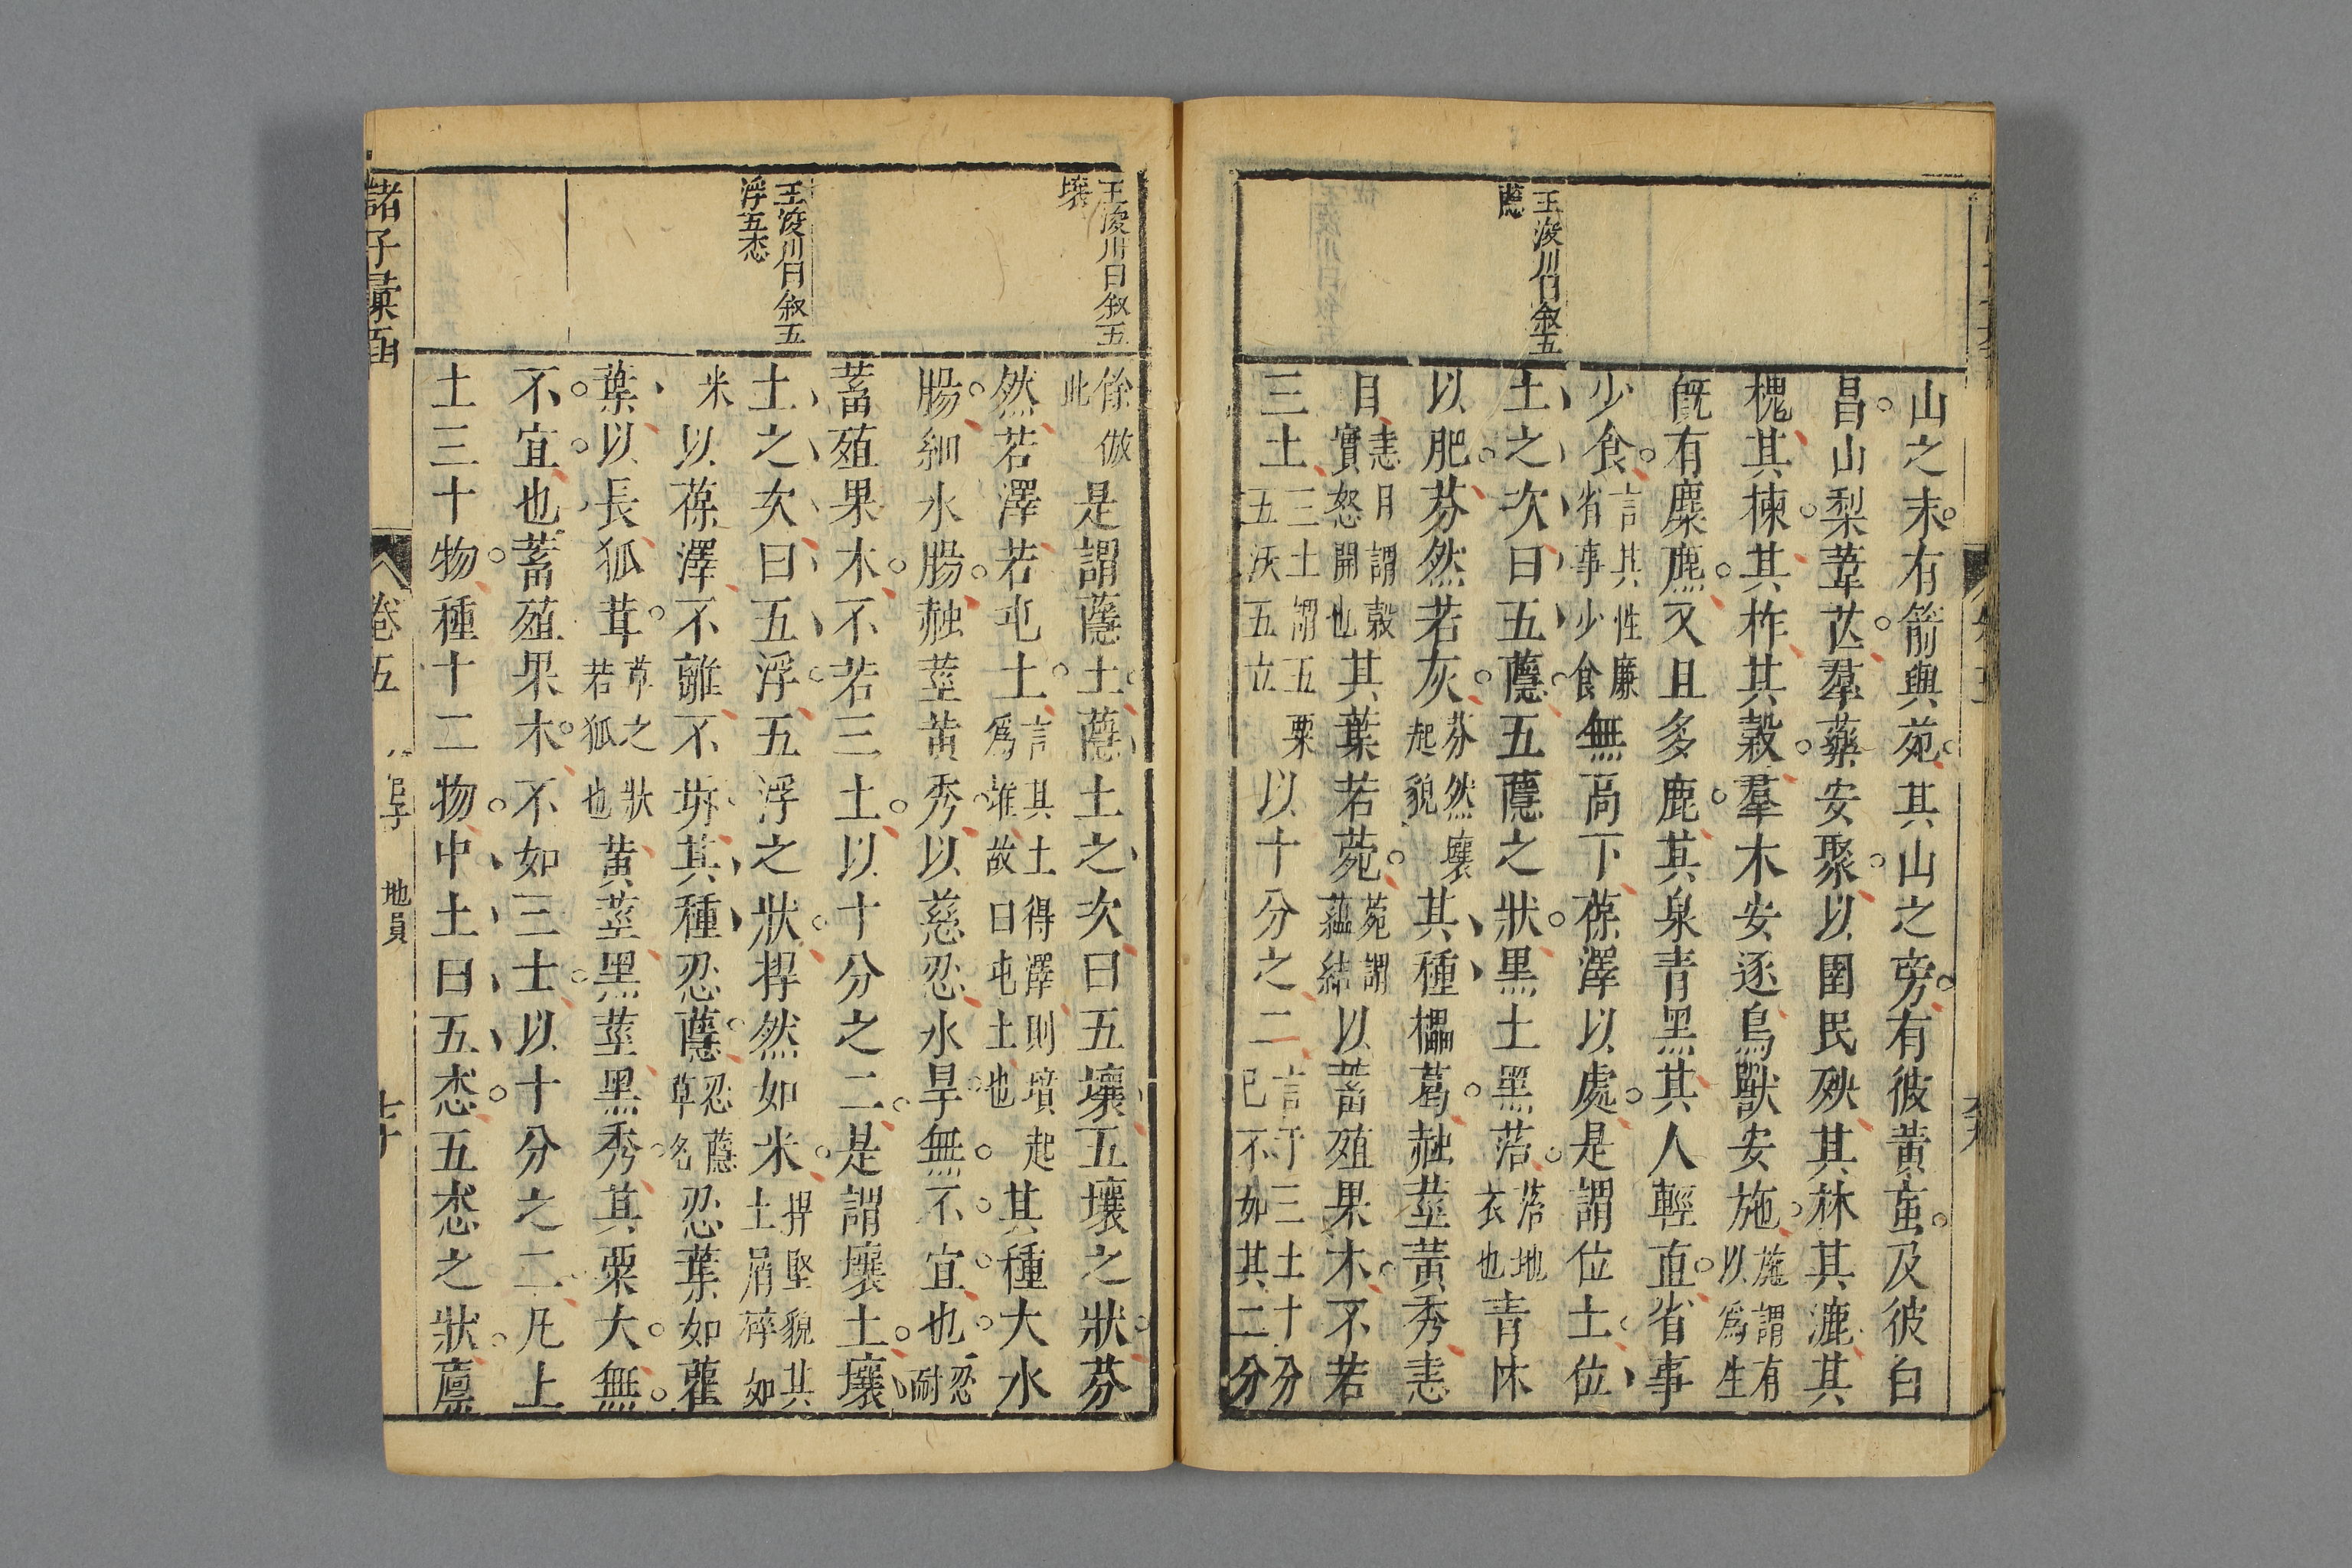 王浚川曰叙五
蘟
山之末有箭與苑其山之旁有彼黃䖟及彼白
昌山梨葦芒羣藥安聚以圉民殃其林其漉其
槐其楝其柞其榖羣木安逐鳥獸安施施謂有以爲生
旣有麋麃又且多鹿其泉青黑其人輕直省事
少食言其性廉省事少食無高下葆澤以處是謂位土位
土之次曰五蘟五蘟之狀黑土黑菭菭地衣也青怵
以肥芬然若灰芬然壤起貌其種櫑葛赨莖黃秀恚
目恚目謂榖實怒開也其葉若苑苑謂蘊結以蓄殖果木不若
三土三土謂五粟五沃五立以十分之二言于三土十分已不如其二分
王浚川曰叙五
壤
王浚川曰叙五
浮五怸
餘倣此是謂蘟土蘟土之次曰五壤五壤之狀芬
然若澤若屯土言其土得澤則墳起爲堆故曰屯土也其種大水
腸細水腸赨莖黃秀以慈忍水旱無不宜也忍耐
蓄殖果木不若三土以十分之二是謂壤土壤
土之次曰五浮五浮之狀捍然如米捍堅貌其土屑碎如
米以葆澤不離不坼其種忍蘟忍蘟草名忍葉如雚
葉以長狐茸草之狀若狐也黃莖黑莖黑秀其粟大無
不宜也蓄殖果木不如三士以十分之二凡上
土三十物種十二物中土曰五怸五怸之狀廪
諸子彙函
卷五
管子
地員